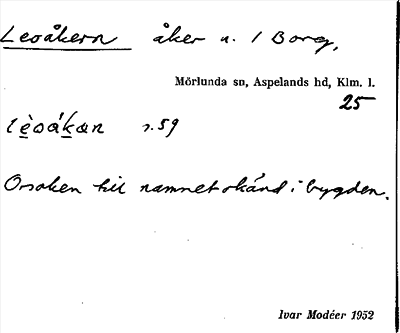 Leoåkern åker n. 1 Borg,
Mörlunda sn, Aspelands hd, Klm. l.
25
lèoákan r. 59
Orsaken till namnet okänd i bygden.
Ivar Modéer 1952